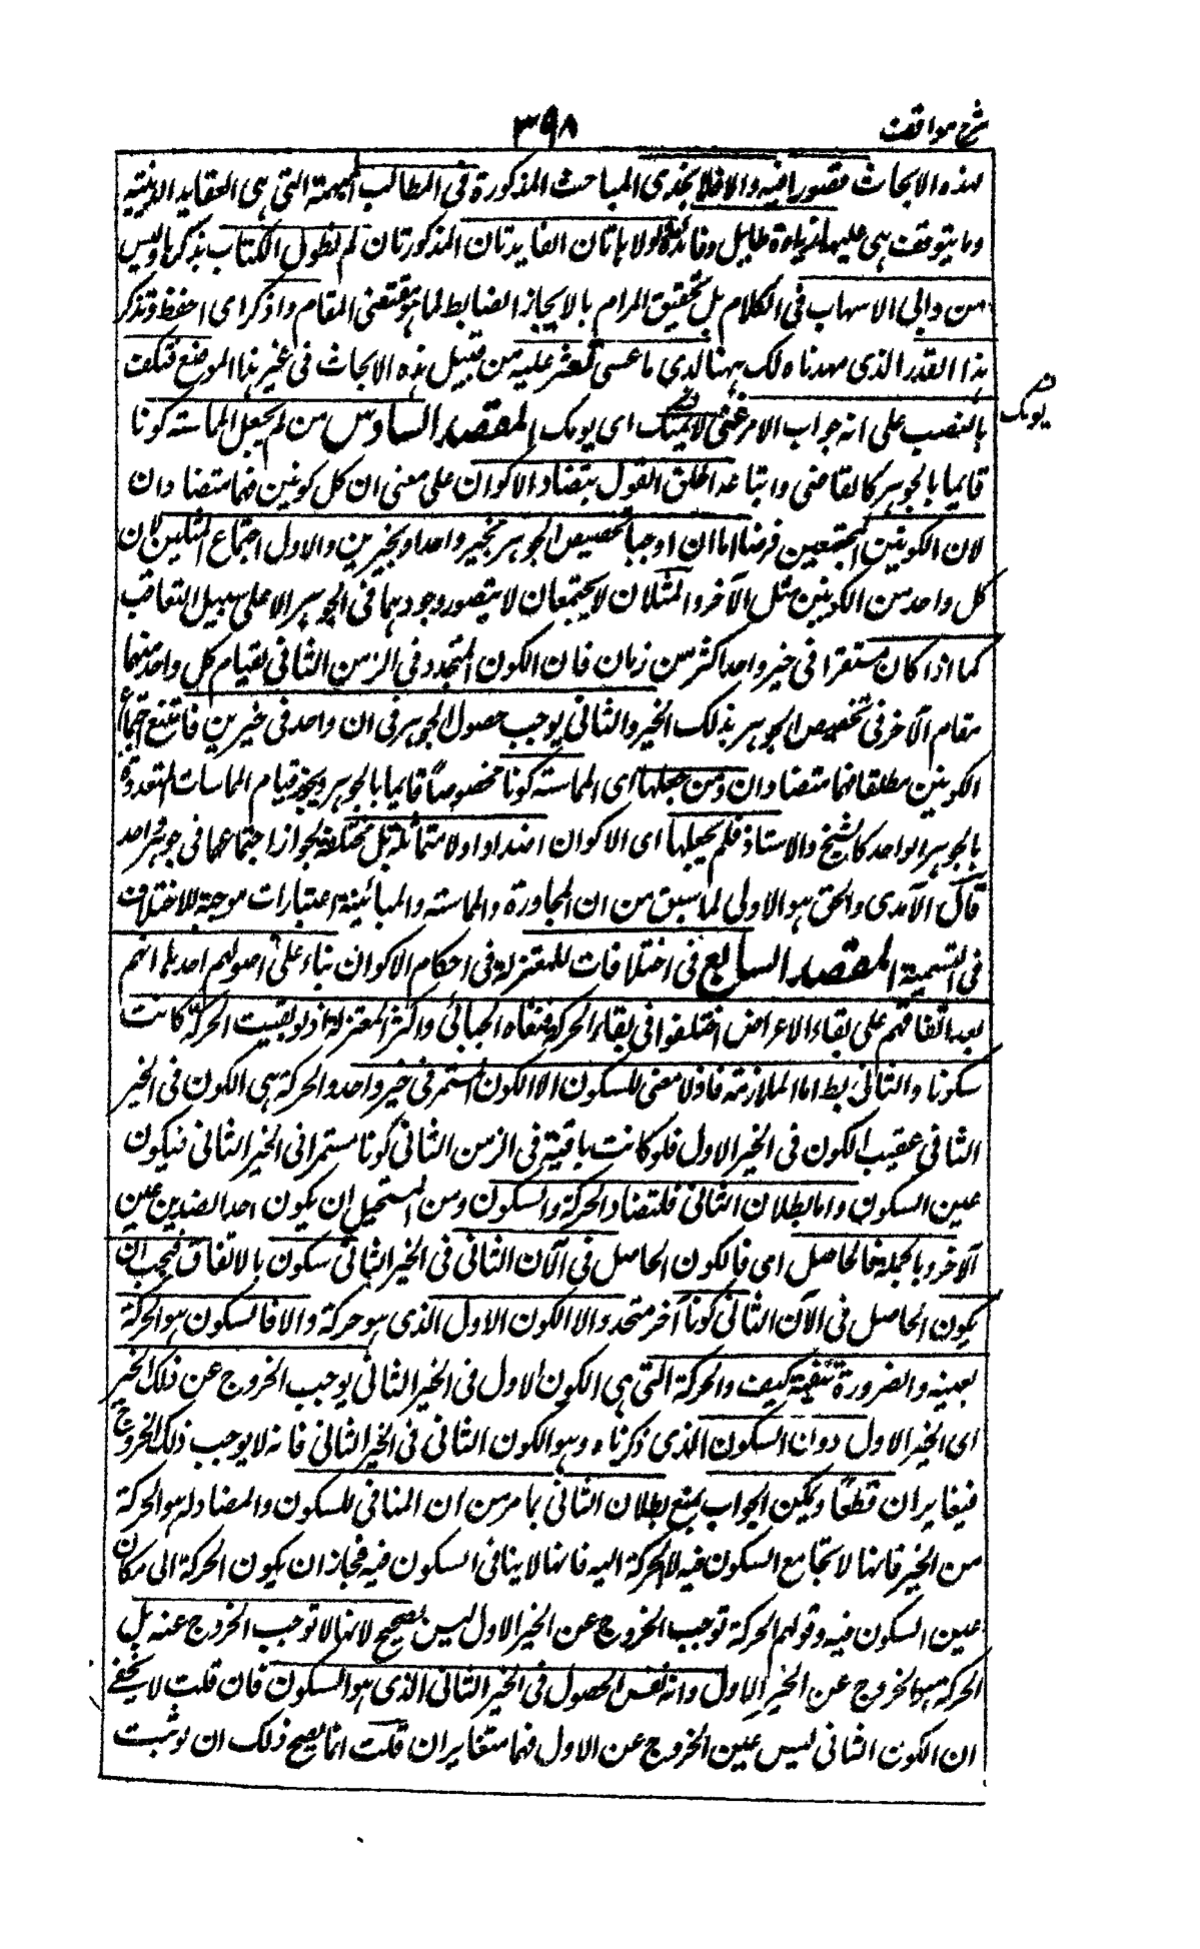 شرح مواقف
۳۹۸
هذه الابحاث قصورا فيه والا فلا يجدى المباحث المذكورة فى المطالب المهمة التى هى العقايد الدينية
وما يتوقف هى عليها زيادة طايل وفائدة ولولا هاتان الفايدتان المذكورتان لم نطول الكتاب بذكرها وليس
من دابى الاسهاب فى الكلام بل تحقيق المرام بالايجاز الضابط لما هو مقتضى المقام واذكر اى احفظ وتذكر
هذا القدر الذى مهدناه لك ههنا لدى ما عسى تعثر عليه من قبيل هذه الابحاث فى غير هذا الموضع فنكف
بالنصب على انه جواب الامر عنى لايمك اى يومك المقصد السادس من لم يجعل المماسة كونا
يومك
قايما بالجوهر كالقاضى واتباعه اطلق القول بتضاد الاكوان على معنى ان كل كونين فهما متضادان
لان الكونين المجتمعين فرضا اما ان اوجبا تخصيص الجوهر بحيز واحد او بحيزين والاول اجتماع المثلين لان
كل واحد من الكونين مثل الآخر والمثلان لا يجتمعان لا يتصور وجودهما فى الجوهر الا على سبيل التعاقب
كما اذا كان مستقرا فى حيز واحد اكثر من زمان فان الكون المتجدد فى الزمن الثانى لقيام كل واحد منهما
مقام الآخر فى تخصيص الجوهر بذلك الحيز والثانى يوجب حصول الجوهر فى ان واحد فى حيزين فامتنع اجتماع
الكونين مطلقا فهما متضادان ومن جعلها اى المماسة كونا مخصوصا قايما بالجوهر ويجوز قيام المماسات المتعددة
بالجوهر الواحد كالشيخ والاستاذ فلم يجعلها اى الاكوان اضدادا ولا متماثلة بل مختلفة لجواز اجتماعها فى جوهر واحد
قال الآمدى والحق هو الاولى لما سبق من ان المجاورة والمماسة والمبائينة اعتبارات موجبة للاختلاف
فى التسمية المقصد السابع فى اختلافات للمعتزلة فى احكام الاكوان بناء على اصولهم احديها انهم
بعد اتفاقهم على بقاء الاعراض اختلفوا فى بقاء الحركة فنفاه الجبائى واكثر المعتزلة اذ لو بقيت الحركة كانت
سكونا والتالى بط اما الملازمة فاذ لا معنى للسكون الا الكون المستمر فى حيز واحد والحركة هى الكون فى الحيز
الثانى عقيب الكون فى الحيز الاول فلو كانت باقية فى الزمن الثانى كونا مستمرا فى الحيز الثانى فيكون
عين السكون واما بطلان التالى فلتضاد الحركة والسكون ومن المستحيل ان يكون احد الضدين عين
الآخر وبالجملة فالحاصل اى فالكون الحاصل فى الآن الثانى فى الحيز الثانى سكون بالاتفاق فيجب ان
يكون الحاصل فى الآن الثانى كونا آخر متجددا لا الكون الاول الذى هو حركة والا فالسكون هو الحركة
بعينه والضرورة تنفيه كيف والحركة التى هى الكون الاول فى الحيز الثانى يوجب الخروج عن ذلك الحيز
اى الحيز الاول دون السكون الذى ذكرناه وهو الكون الثانى فى الحيز الثانى فانه لا يوجب ذلك الخروج
فيغايران قطعًا ويمكن الجواب بمنع بطلان التالى بما مر من ان المنافى للسكون والمضاد له هو الحركة
من الحيز فانها لا تجامع السكون فيه لا الحركة اليه فانها لا ينافى السكون فيه فجاز ان يكون الحركة الى مكان
عين السكون فيه وقولهم الحركة توجب الخروج عن الحيز الاول ليس بصحيح لانها لا توجب الخروج عنه بل
الحركة هو الخروج عن الحيز الاول وانه نفس الحصول فى الحيز الثانى الذى هو السكون فان قلت لا يخفى
ان الكون الثانى ليس عين الخروج عن الاول فهما متغايران قلت انما يصح ذلك ان لو ثبت